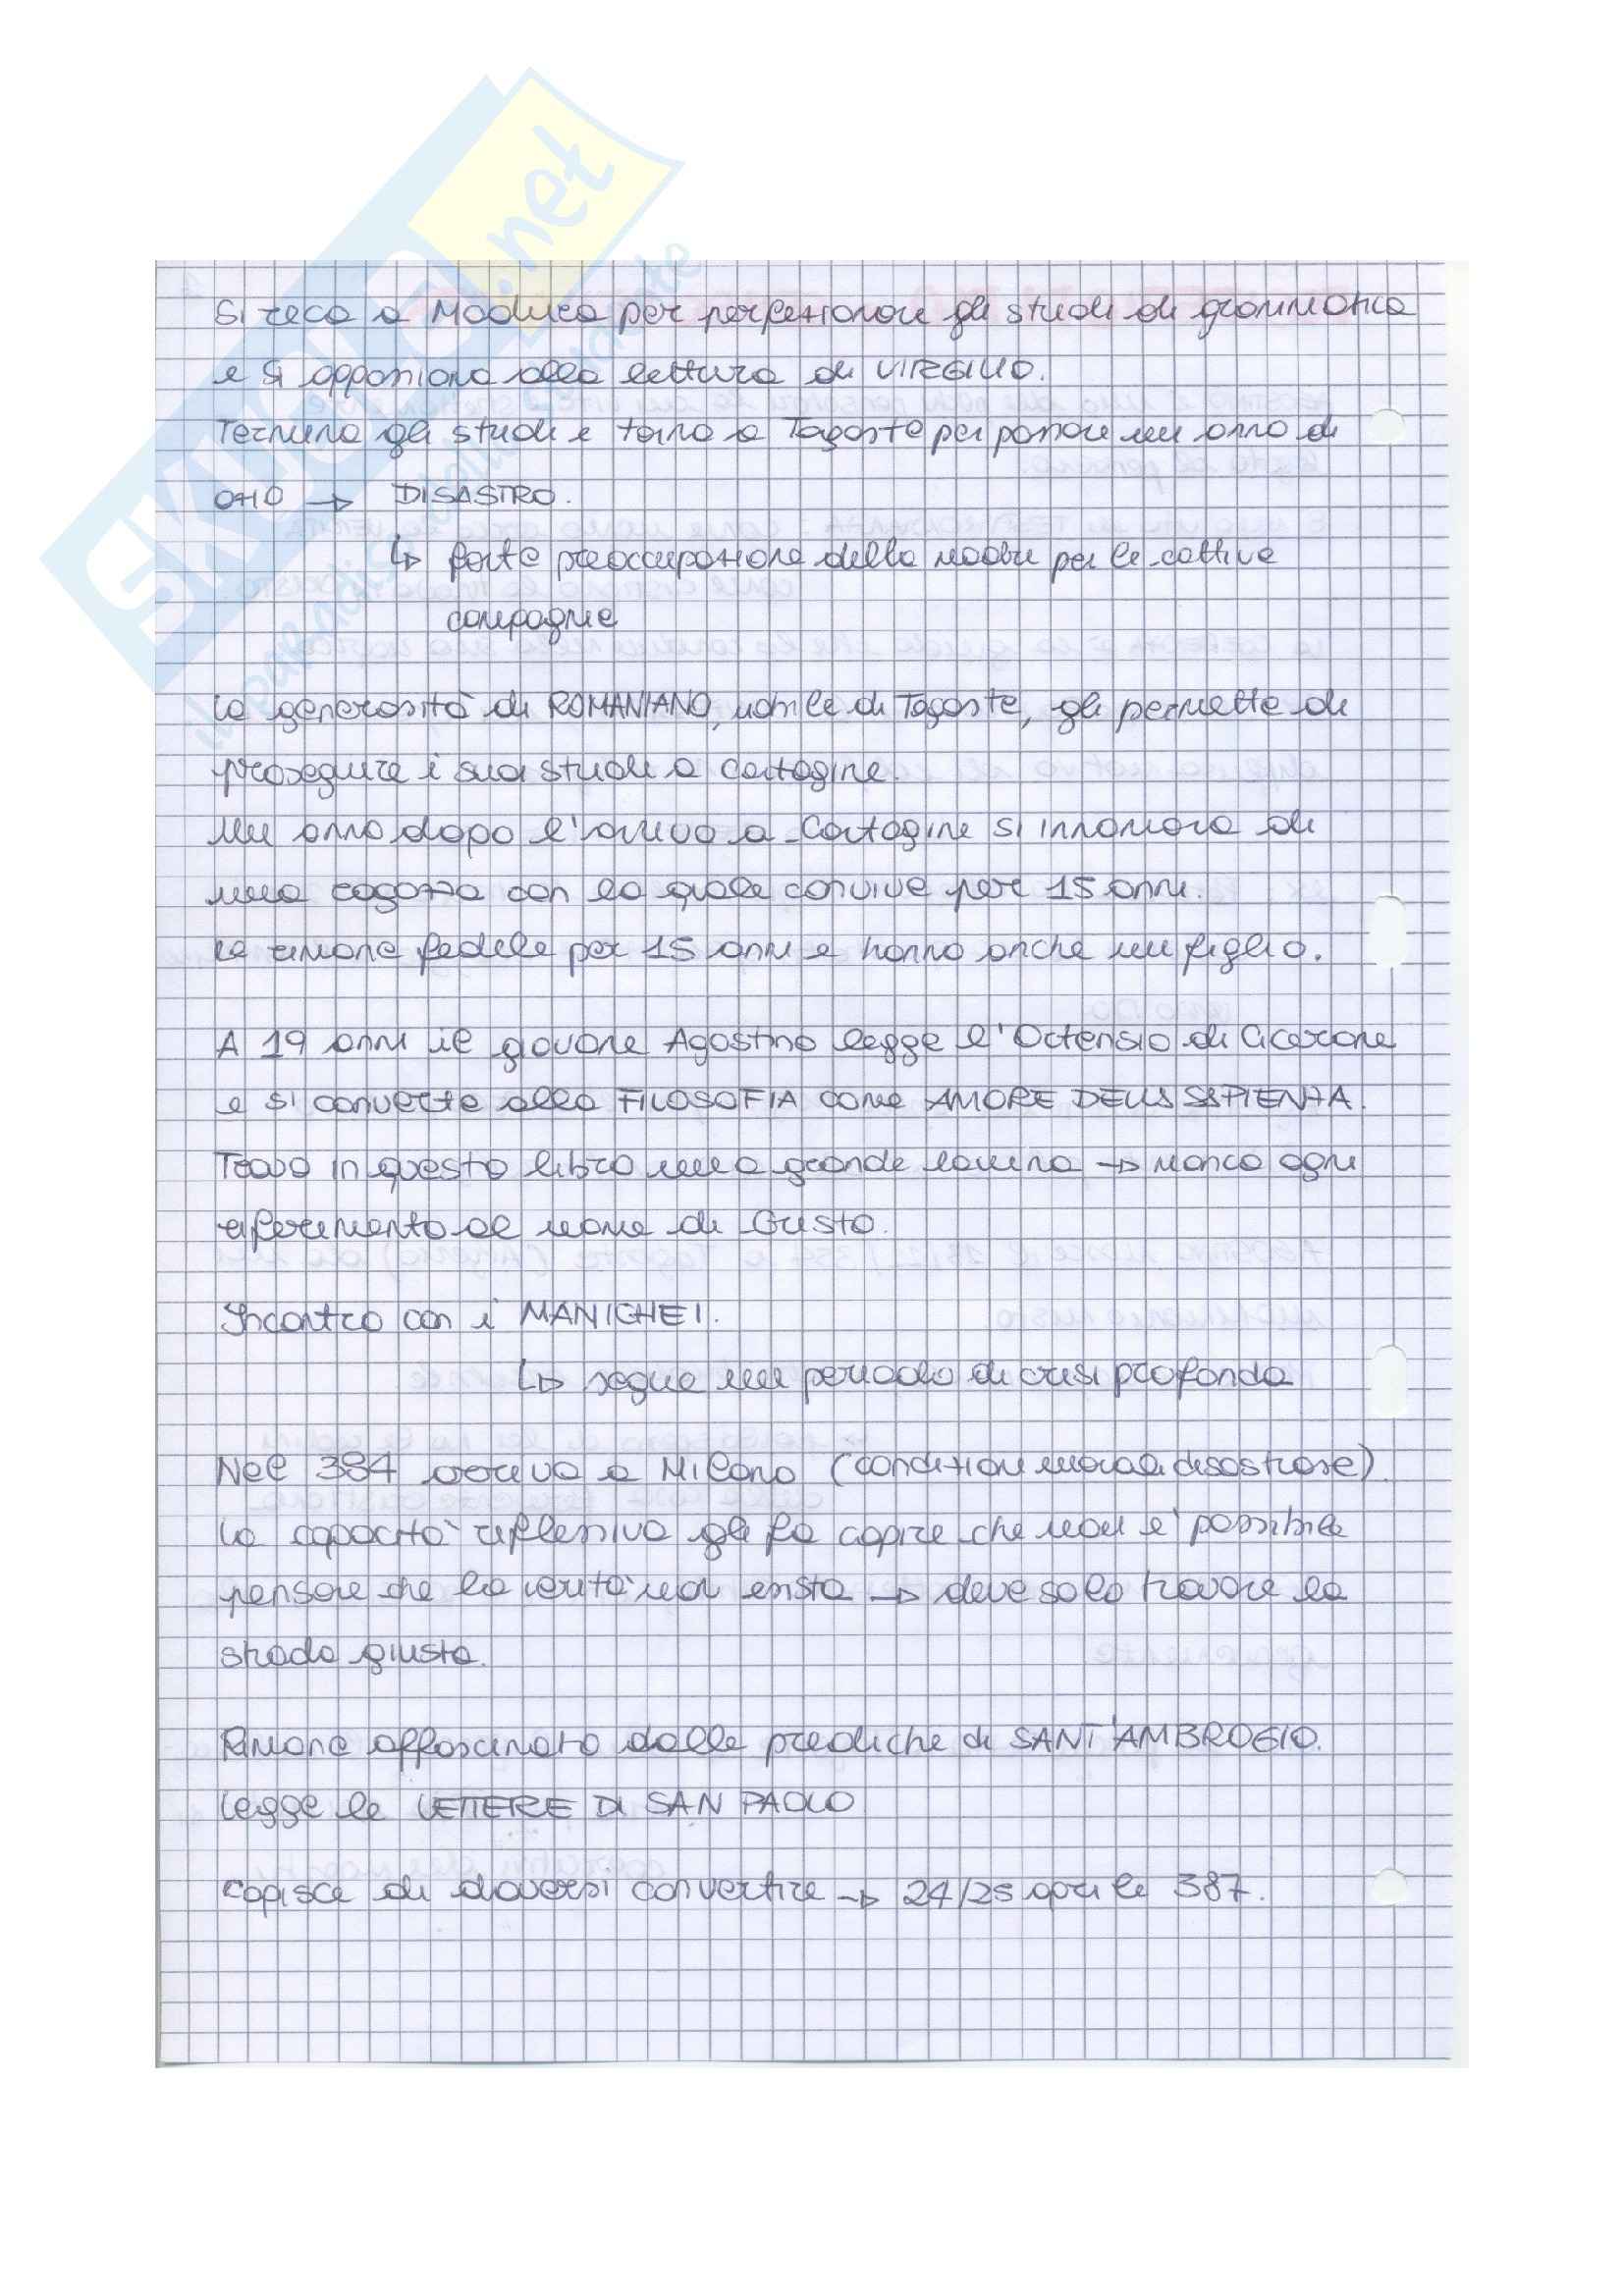 SKUOLA.net
il paradiso dello studente
Si reca a Madaura per perfezionare gli studi di grammatica
e si appassiona alla lettura di VIRGILIO.
Termina gli studi e torna a Tagaste per passare un anno di
ozio → DISASTRO.
↳ forte preoccupazione della madre per le cattive
compagnie
La generosità di ROMANIANO, nobile di Tagaste, gli permette di
proseguire i suoi studi a Cartagine.
Un anno dopo l'arrivo a Cartagine si innamora di
una ragazza con la quale convive per 15 anni.
Le rimane fedele per 15 anni e hanno anche un figlio.
A 19 anni il giovane Agostino legge l'Ortensio di Cicerone
e si converte alla FILOSOFIA come AMORE DELLA SAPIENZA.
Trova in questo libro una grande lacuna → manca ogni
riferimento al nome di Cristo.
Incontro con i MANICHEI.
↳ segue un periodo di crisi profonda
Nel 384 arriva a Milano (condizioni morali disastrose).
La capacità riflessiva gli fa capire che non e' possibile
pensare che la verità non esista → deve solo trovare la
strada giusta.
Rimane affascinato dalle prediche di SANT'AMBROGIO.
Legge le LETTERE DI SAN PAOLO
Capisce di doversi convertire → 24/25 aprile 387.